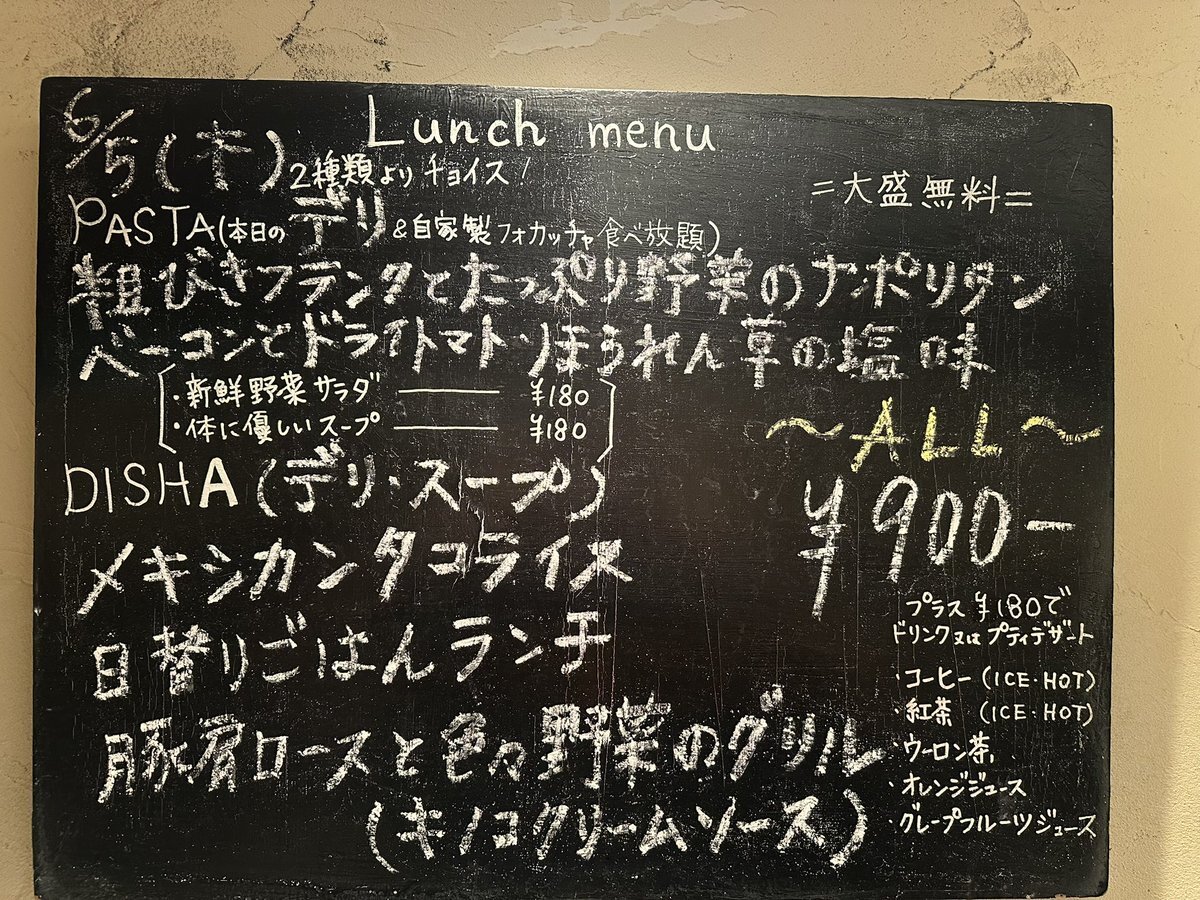 6/5(木)
Lunch menu
2種類よりチョイス!
=大盛無料=
PASTA(本日のデリ&自家製フォカッチャ食べ放題)
粗びきフランクとたっぷり野菜のナポリタン
ベーコンとドライトマト・ほうれん草の塩味
・新鮮野菜サラダ ¥180
・体に優しいスープ ¥180
~ALL~
¥900-
DISHA(デリ・スープ)
メキシカンタコライス
日替りごはんランチ
豚肩ロースと色々野菜のグリル
(キノコクリームソース)
プラス¥180で
ドリンク又はプティデザート
・コーヒー(ICE・HOT)
・紅茶 (ICE・HOT)
・ウーロン茶
・オレンジジュース
・グレープフルーツジュース